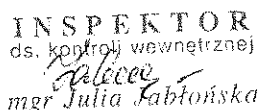 INSPEKTOR
ds. kontroli wewnętrznej
mgr Julia Jabłońska